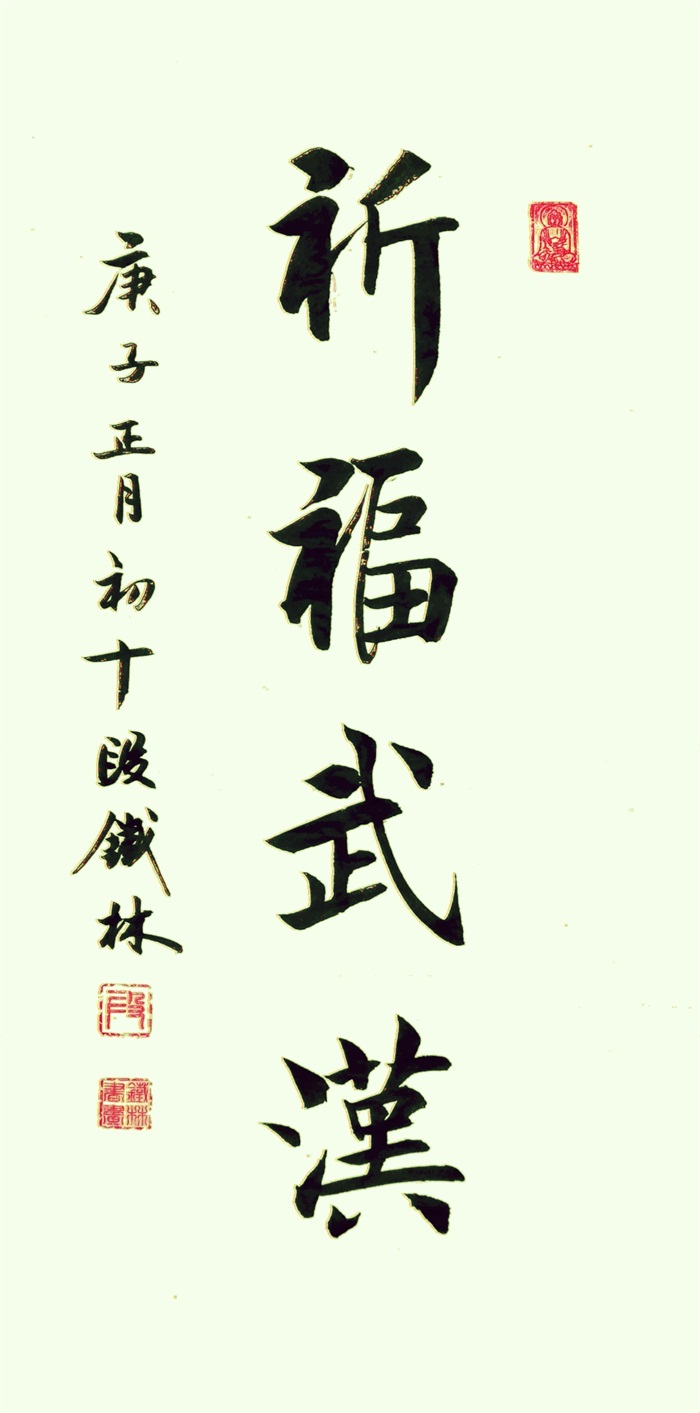 祈福武漢
庚子正月初十段鐵林
段
鐵林書畫